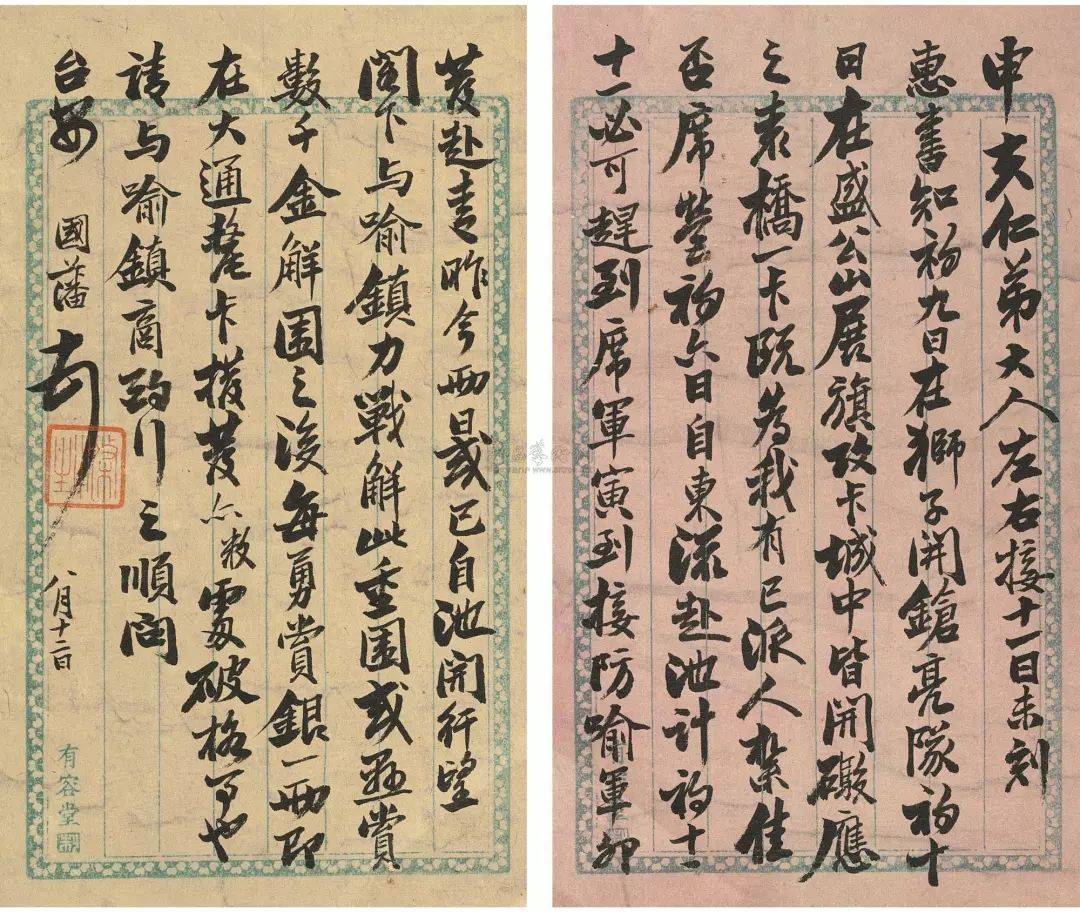 申夫仁弟大人左右接十一日未刻
惠書知初九日在獅子開鎗亮隊初十
日在盛公山展旗攻卡城中皆開礮應
之袁橋一卡既為我有已派人紮住
否席營初六日自東流赴池計初十
十一必可趕到席軍寅到接防喻軍卯
發赴青昨今兩日或已自池開行望
閣下与喻鎮力戰解此重圍或懸賞
數千金解圍之後每勇賞銀一兩即
在大通釐卡撥發亦救處破格事也
請与喻鎮商酌行之順問
台安 國藩
八月十二日
有容堂